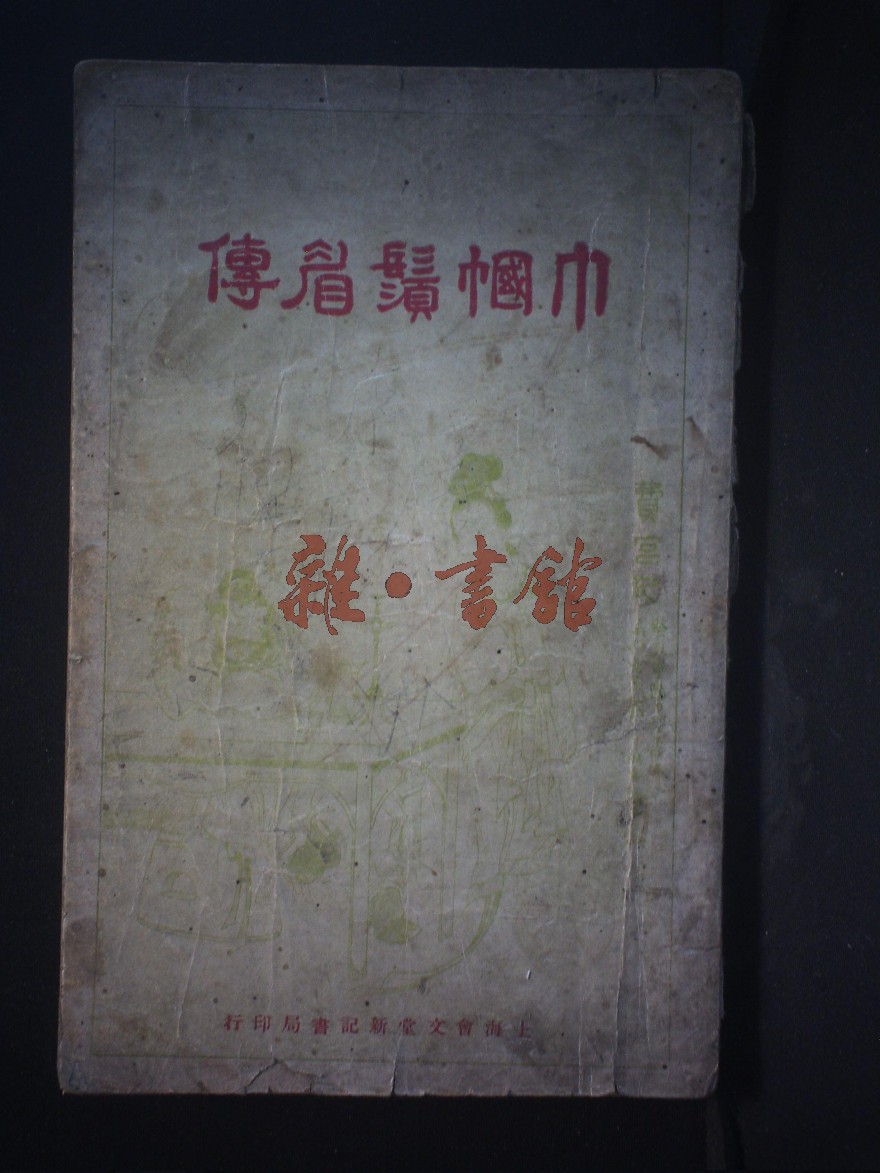 巾幗鬚眉傳
雜·書館
上海會文堂新記書局印行